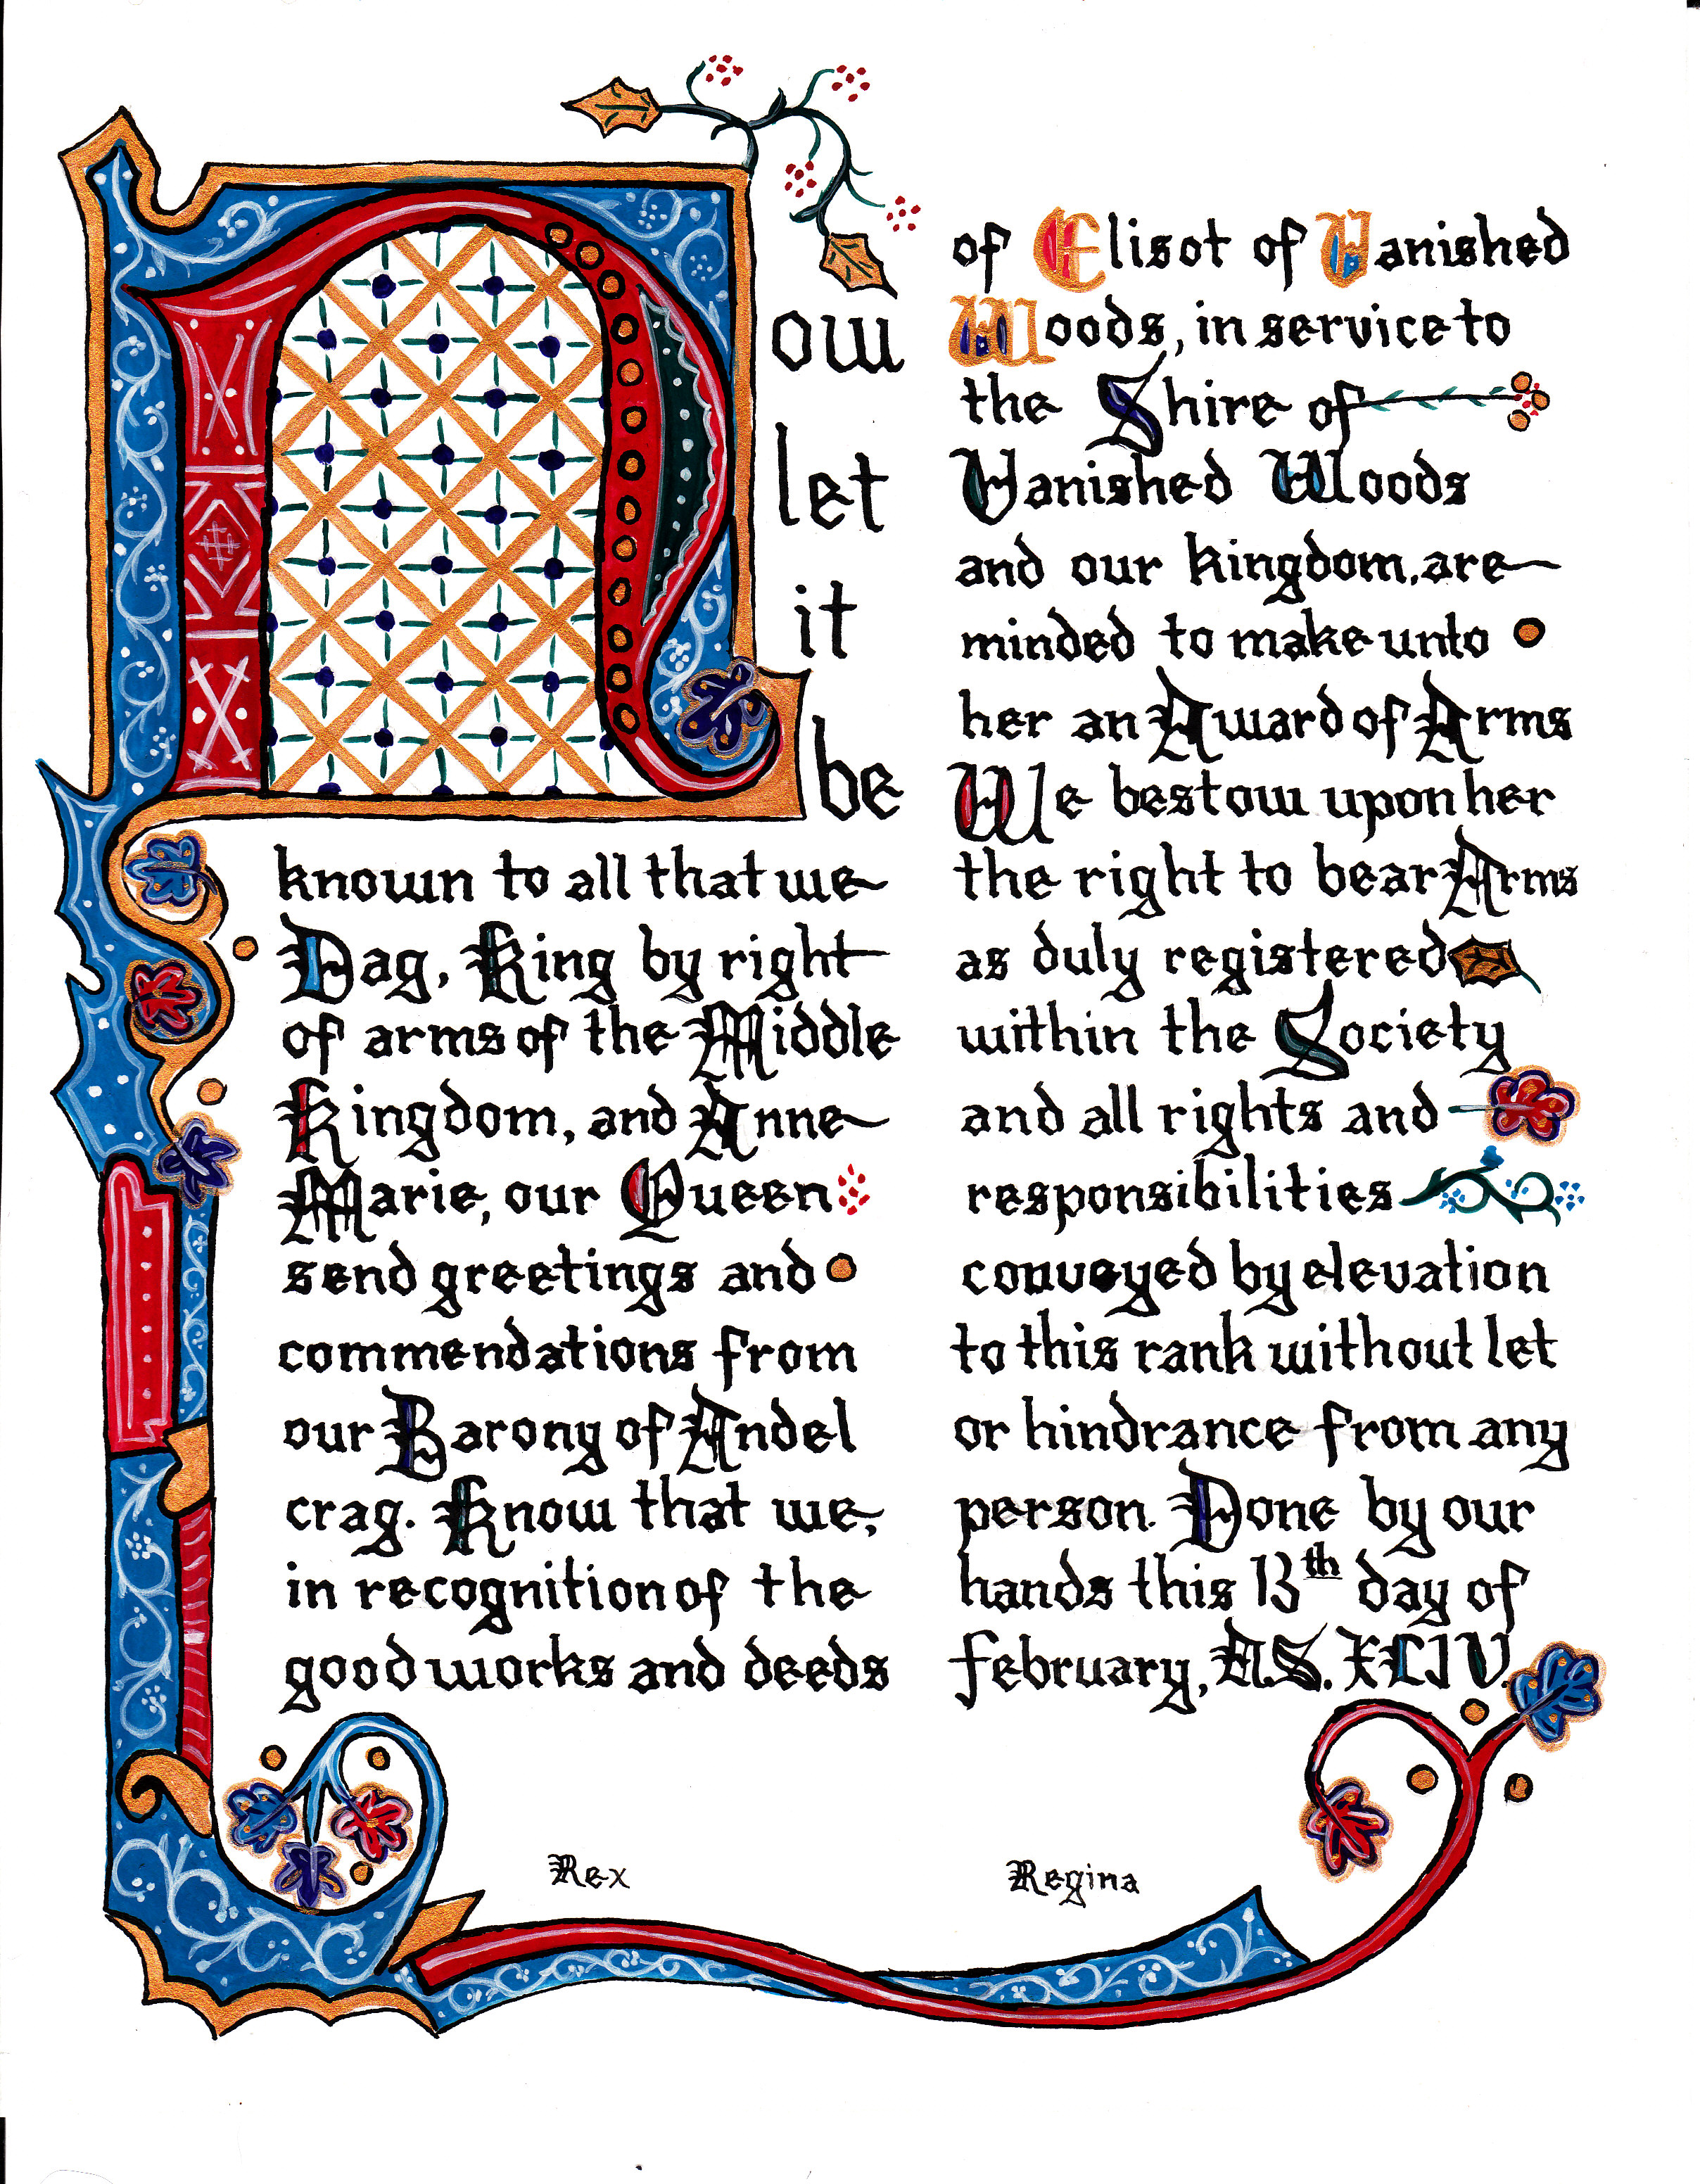 Now
let
it
be
known to all that we
Dag, King by right
of arms of the Middle
Kingdom, and Anne
Marie, our Queen
send greetings and
commendations from
our Barony of Andel
crag. Know that we,
in recognition of the
good works and deeds
of Elisot of Vanished
Woods, in service to
the Shire of
Vanished Woods
and our kingdom, are
minded to make unto
her an Award of Arms
We bestow upon her
the right to bear Arms
as duly registered
within the Society
and all rights and
responsibilities
conveyed by elevation
to this rank without let
or hindrance from any
person. Done by our
hands this 13th day of
february, A.S. XLIV.
Rex
Regina